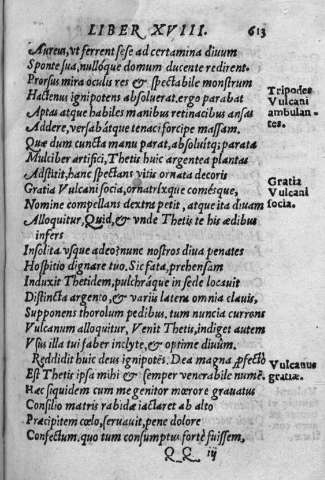 LIBER XVIII. 613
Aurea, vt ferrent sese ad certamina diuum
Sponte sua, nullóque domum ducente redirent.
Prorsus mira oculis res & spectabile monstrum
Hactenus ignipotens absoluerat, ergo parabat
Tripodes
Vulcani
ambulan-
tes.
Aptas atque habiles manibus retinacula ansas
Addere, versabátque tenaci forcipe massam.
Quæ dum cuncta manu parat, absoluitq; parata
Mulciber artifici, Thetis huic argentea plantas
Adstitit, hanc spectans vitis ornata decoris
Gratia Vulcani socia, ornatrixque comésque,
Gratia
Vulcani
socia.
Nomine compellans dextra petit, atque ita diuam
Alloquitur, Quid, & vnde Thetis te his ædibus
infers
Insolita vsque adeo? nunc nostros diua penates
Hospitio dignare tuo. Sic fata, prehensam
Induxit Thetidem, pulchráque in sede locauit
Distincta argento, & variis latera omnia clauis,
Supponens thorulum pedibus. tum nuncia currens
Vulcanum alloquitur, Venit Thetis, indiget autem
Vsus illa tui faber inclyte, & optime diuûm.
Reddidit huic deus ignipotês. Dea magna pfectò
Est Thetis ipsa mihi & semper venerabile numê.
Vulcanus
gratiæ.
Hæc siquidem cum me genitor mœrore grauatus
Consilio matris rabidæ iactaret ab alto
Præcipitem cœlo, seruauit, pene dolore
Confectum, quo tum consumptus fortè fuissem,
QQ iij